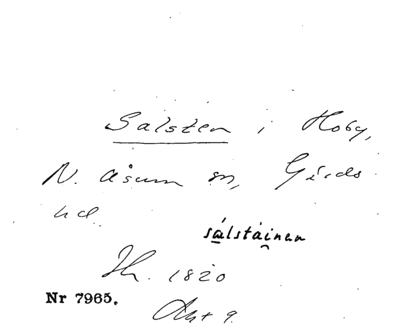 Salsten i Hoby,
N. Åsum sn, Gärds
hd.
sálstáinen
Jh. 1820
Nr 7965.
Akt 9.